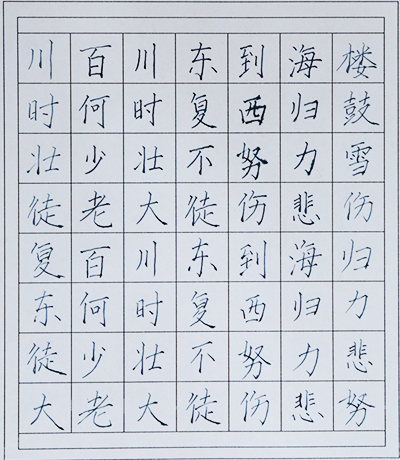 川百川东到海楼
时何时复西归鼓
壮少壮不努力雪
徒老大徒伤悲伤
复百川东到海归
东何时复西归力
徒少壮不努力悲
大老大徒伤悲努